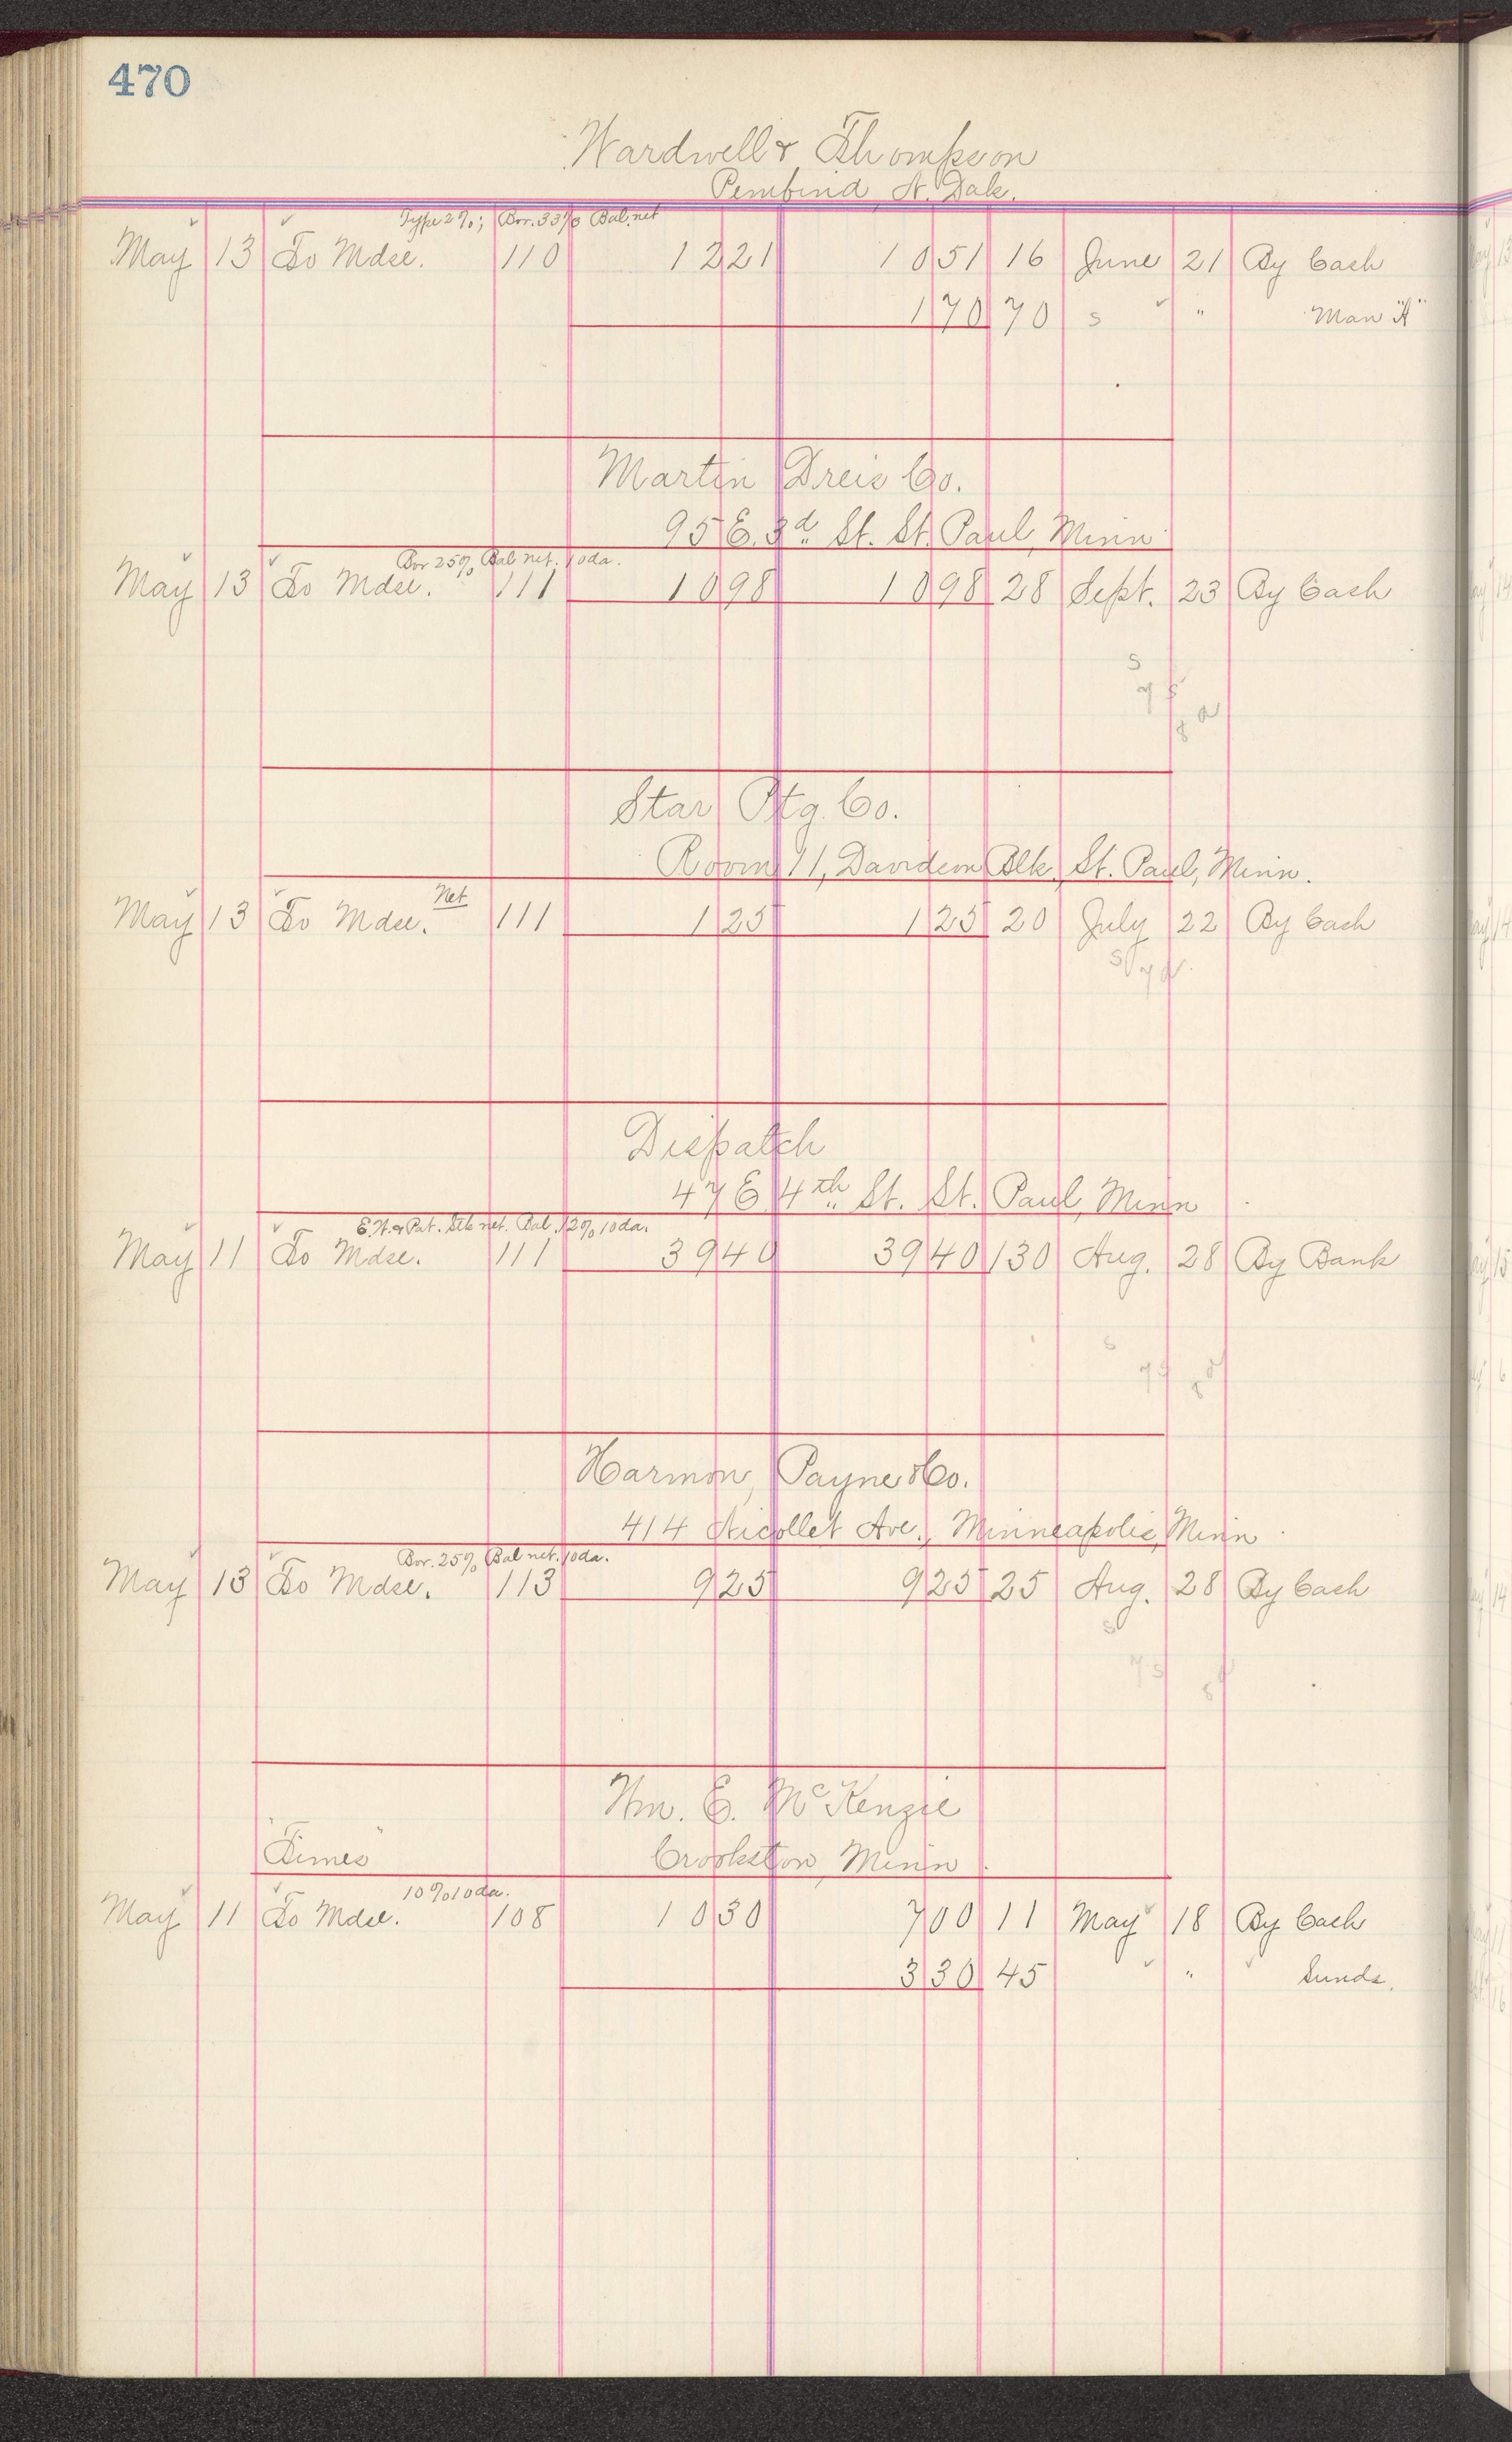 470
Wardwell & Thompson
Pembina, N. Dak.
Type 2%; Bor. 33% Bal. net
May 13 To Mdse. 110 12 21 10 51 16 June 21 By Cash
1 70 70 s " Man "A"
Martin Dreis Co.
95 E. 3d St. St. Paul, Minn.
Bor 25% Bal net. 10 da.
May 13 To Mdse. 111 10 98 10 98 28 Sept. 23 By Cash
Star Ptg. Co.
Room 11, Davidson Blk, St. Paul, Minn.
Net
May 13 To Mdse. 111 1 25 1 25 20 July 22 By Cash
Dispatch
47 E 4th St. St. Paul, Minn
net. Bal. 2% 10 da.
May 11 To Mdse. 111 39 40 39 40 130 Aug. 28 By Bank
Harmon, Payne & Co.
414 Nicollet Ave., Minneapolis, Minn
Bor. 25% Bal net. 10 da.
May 13 To Mdse. 113 9 25 9 25 25 Aug. 28 By Cash
Wm. E. McKenzie
"Times" Crookston, Minn.
10% 10 da.
May 11 To Mdse. 108 10 30 7 00 11 May 18 By Cash
3 30 45 " Sunds.